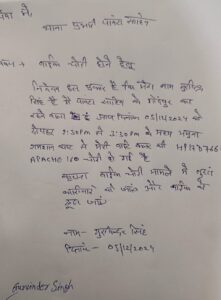 सेवा में,
थाना प्रभारी
विषय - बाईक चोरी होने हेतु
निवेदन इस प्रकार है कि मेरा नाम गुरविन्दर
सिंह है मैं पांवटा साहिब का
रहने वाला हूँ आज दिनांक 05/12/2024 को
दोपहर 2:30PM से 3:30PM के मध्य यमुना
घाट से मेरी बाईक नम्बर
APACHE 160 चोरी हो गई है
कृपया बाईक चोरी मामले में तुरंत
कार्यवाही की जाए और बाईक को
ढूंढा जाए।
नाम - गुरविन्दर सिंह
दिनांक - 05/12/2024
Gurvinder Singh